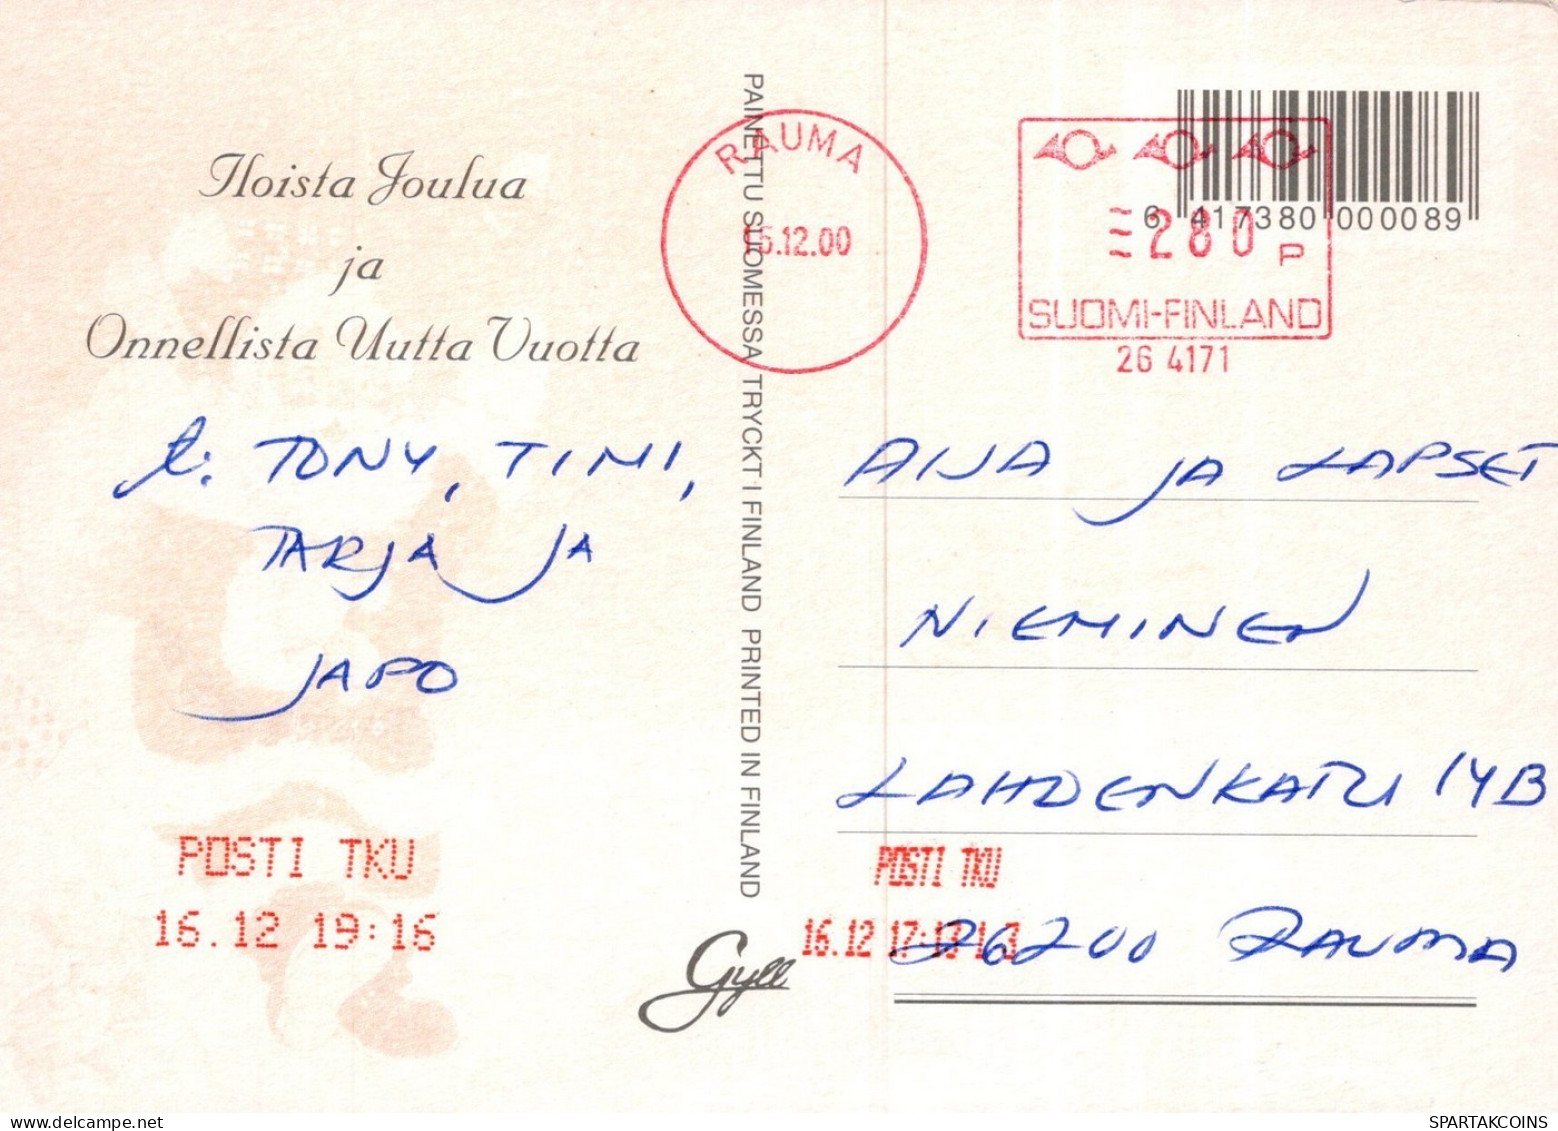 Iloista Joulua
ja
Onnellista Uutta Vuotta
t: TONY, TIMI,
TARJA JA
JAPO
POSTI TKU
16.12 19:16
PAINETTU SUOMESSA TRYCKT I FINLAND PRINTED IN FINLAND
Gyll
RAUMA
16.12.00
6 417380 000089
280 P
SUOMI-FINLAND
26 4171
AIJA JA LAPSET
NIEMINEN
LAHDENKATU 14B
POSTI TKU
16.12
26200 RAUMA
SPARTAKCOINS.COM
delcampe.net